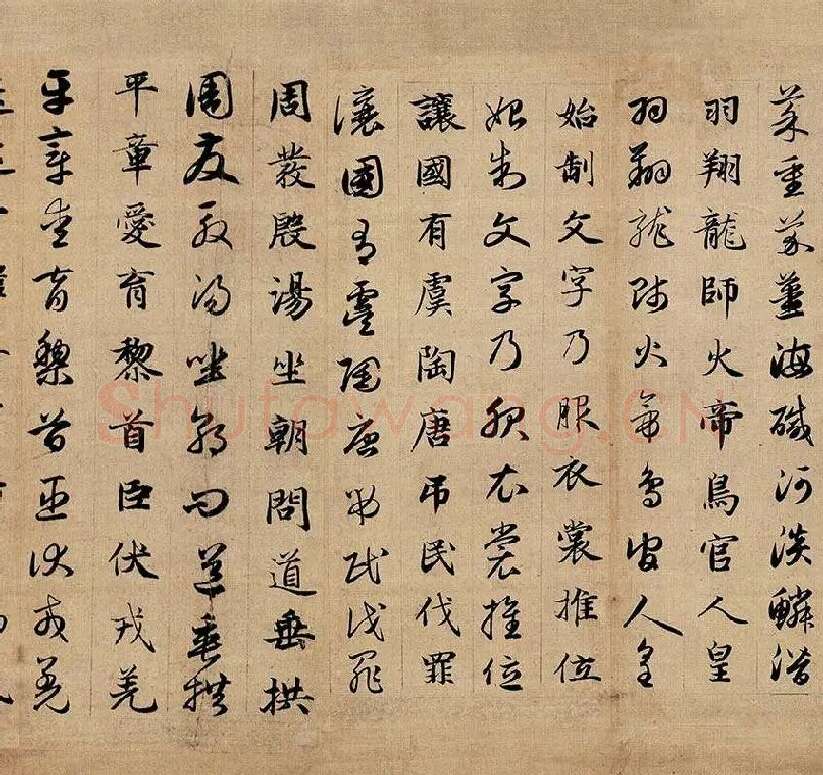 菜重芥薑海鹹河淡鱗潛
羽翔龍師火帝鳥官人皇
羽翔龍師火帝鳥官人皇
始制文字乃服衣裳推位
始制文字乃服衣裳推位
讓國有虞陶唐吊民伐罪
讓國有虞陶唐吊民伐罪
周發殷湯坐朝問道垂拱
周發殷湯坐朝問道垂拱
平章愛育黎首臣伏戎羌
平章愛育黎首臣伏戎羌
Shufawang.CN